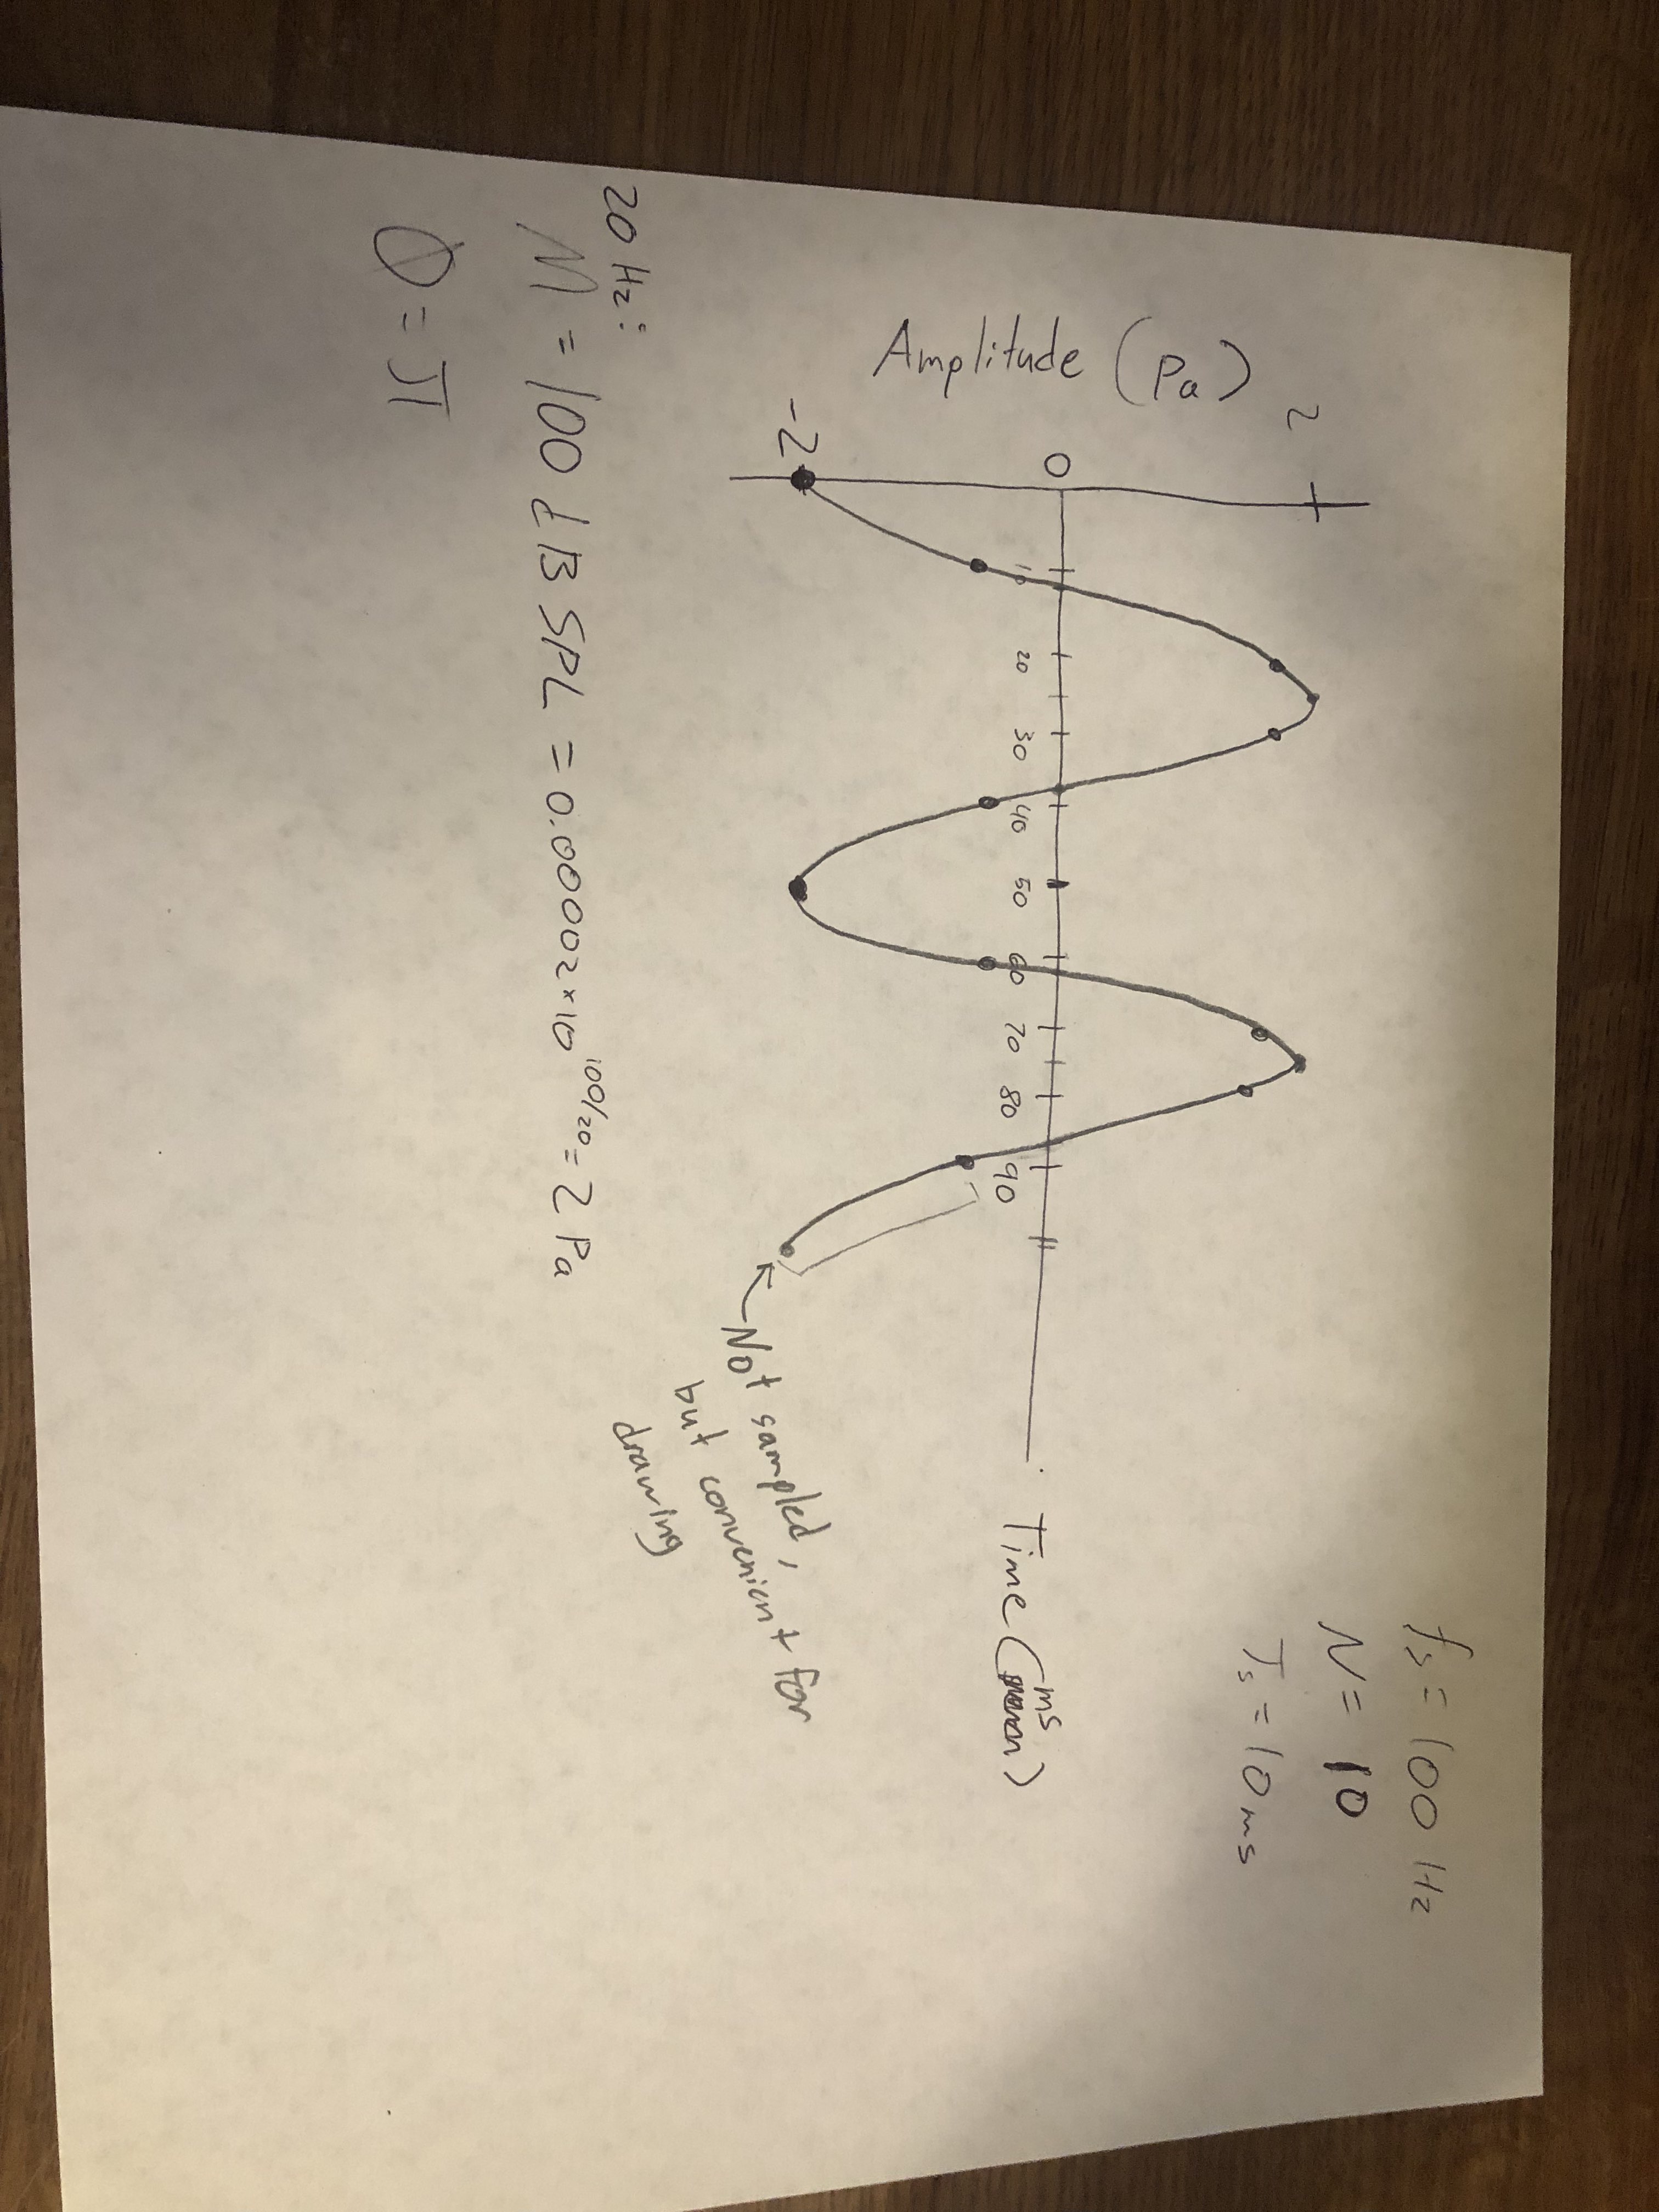 fs = 100 Hz
N = 10
Ts = 10 ms
2
Amplitude (Pa)
0
10 20 30 40 50 60 70 80 90
ms
Time ( )
-2
Not sampled,
but convenient for
drawing
20 Hz:
M = 100 dB SPL = 0.00002×10^100/20 = 2 Pa
Ø = π